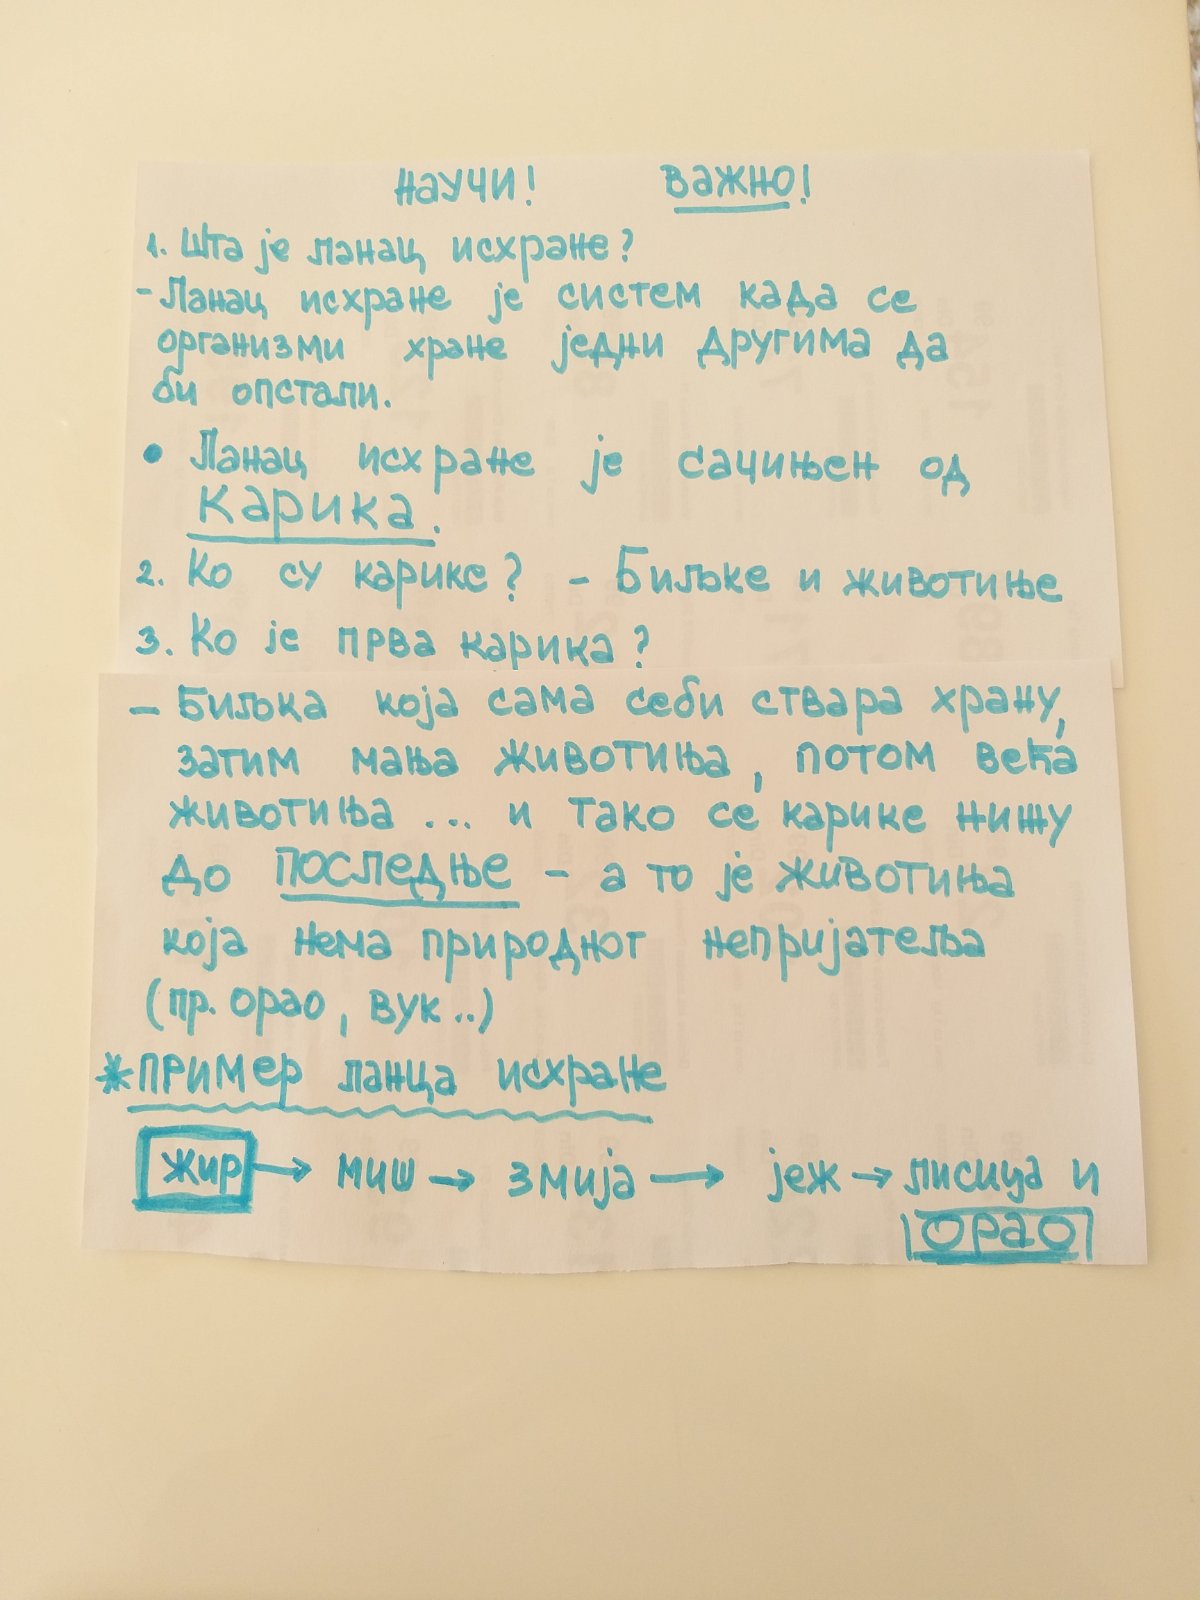 Научи! Важно!
1. Шта је ланац исхране?
- Ланац исхране је систем када се
организми хране једни другима да
би опстали.
• Ланац исхране је сачињен од
карика.
2. Ко су карике? - Биљке и животиње
3. Ко је прва карика?
- Биљка која сама себи ствара храну,
затим мања животиња, потом већа
животиња ... и тако се карике нижу
до последње - а то је животиња
која нема природног непријатеља
(пр. орао, вук..)
*Пример ланца исхране
жир → миш → змија → јеж → лисица и
орао